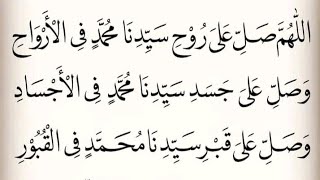 اللّٰهُمَّ صَلِّ عَلىٰ رُوْحِ سَيِّدِنَا مُحَمَّدٍ فِى الْأَرْوَاحِ
وَصَلِّ عَلىٰ جَسَدِ سَيِّدِنَا مُحَمَّدٍ فِى الْأَجْسَادِ
وَصَلِّ عَلىٰ قَبْرِ سَيِّدِنَا مُحَمَّدٍ فِى الْقُبُوْرِ